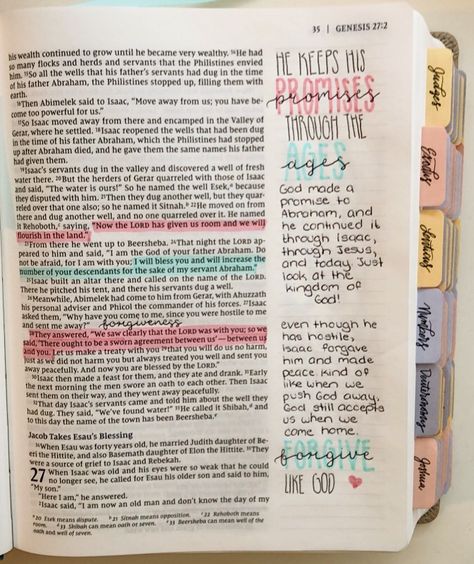 35 | GENESIS 27:2
his wealth continued to grow until he became very wealthy. 14He had
so many flocks and herds and servants that the Philistines envied
him. 15So all the wells that his father's servants had dug in the time
of his father Abraham, the Philistines stopped up, filling them with
earth.
16Then Abimelek said to Isaac, "Move away from us; you have be-
come too powerful for us."
17So Isaac moved away from there and encamped in the Valley of
Gerar, where he settled. 18Isaac reopened the wells that had been dug
in the time of his father Abraham, which the Philistines had stopped
up after Abraham died, and he gave them the same names his father
had given them.
19Isaac's servants dug in the valley and discovered a well of fresh
water there. 20But the herders of Gerar quarreled with those of Isaac
and said, "The water is ours!" So he named the well Esek,a because
they disputed with him. 21Then they dug another well, but they quar-
reled over that one also; so he named it Sitnah.b 22He moved on from
there and dug another well, and no one quarreled over it. He named
it Rehoboth,c saying, "Now the LORD has given us room and we will
flourish in the land."
23From there he went up to Beersheba. 24That night the LORD ap-
peared to him and said, "I am the God of your father Abraham. Do
not be afraid, for I am with you; I will bless you and will increase the
number of your descendants for the sake of my servant Abraham."
25Isaac built an altar there and called on the name of the LORD.
There he pitched his tent, and there his servants dug a well.
26Meanwhile, Abimelek had come to him from Gerar, with Ahuzzath
his personal adviser and Phicol the commander of his forces. 27Isaac
asked them, "Why have you come to me, since you were hostile to me
and sent me away?" forgiveness
28They answered, "We saw clearly that the LORD was with you; so we
said, 'There ought to be a sworn agreement between us'—between us
and you. Let us make a treaty with you 29that you will do us no harm,
just as we did not harm you but always treated you well and sent you
away peacefully. And now you are blessed by the LORD."
30Isaac then made a feast for them, and they ate and drank. 31Early
the next morning the men swore an oath to each other. Then Isaac
sent them on their way, and they went away peacefully.
32That day Isaac's servants came and told him about the well they
had dug. They said, "We've found water!" 33He called it Shibah,d and
to this day the name of the town has been Beersheba.e
Jacob Takes Esau's Blessing
34When Esau was forty years old, he married Judith daughter of Be-
eri the Hittite, and also Basemath daughter of Elon the Hittite. 35They
were a source of grief to Isaac and Rebekah.
27 When Isaac was old and his eyes were so weak that he could
no longer see, he called for Esau his older son and said to him,
"My son."
"Here I am," he answered.
2Isaac said, "I am now an old man and don't know the day of my
a 20 Esek means dispute. b 21 Sitnah means opposition. c 22 Rehoboth means
room. d 33 Shibah can mean oath or seven. e 33 Beersheba can mean well of the
oath and well of seven.
HE KEEPS HIS
PROMISES
promises
THROUGH THE
AGES
ages
God made a
promise to
Abraham, and
he continued it
through Isaac,
through Jesus,
and today. Just
look at the
kingdom of
God!
even though he
was hostile,
Isaac forgave
him and made
peace kind of
like when we
push God away,
God still accepts
us when we
come home.
FORGIVE
forgive
LIKE GOD
Judges
Exodus
Leviticus
Numbers
Deuteronomy
Joshua